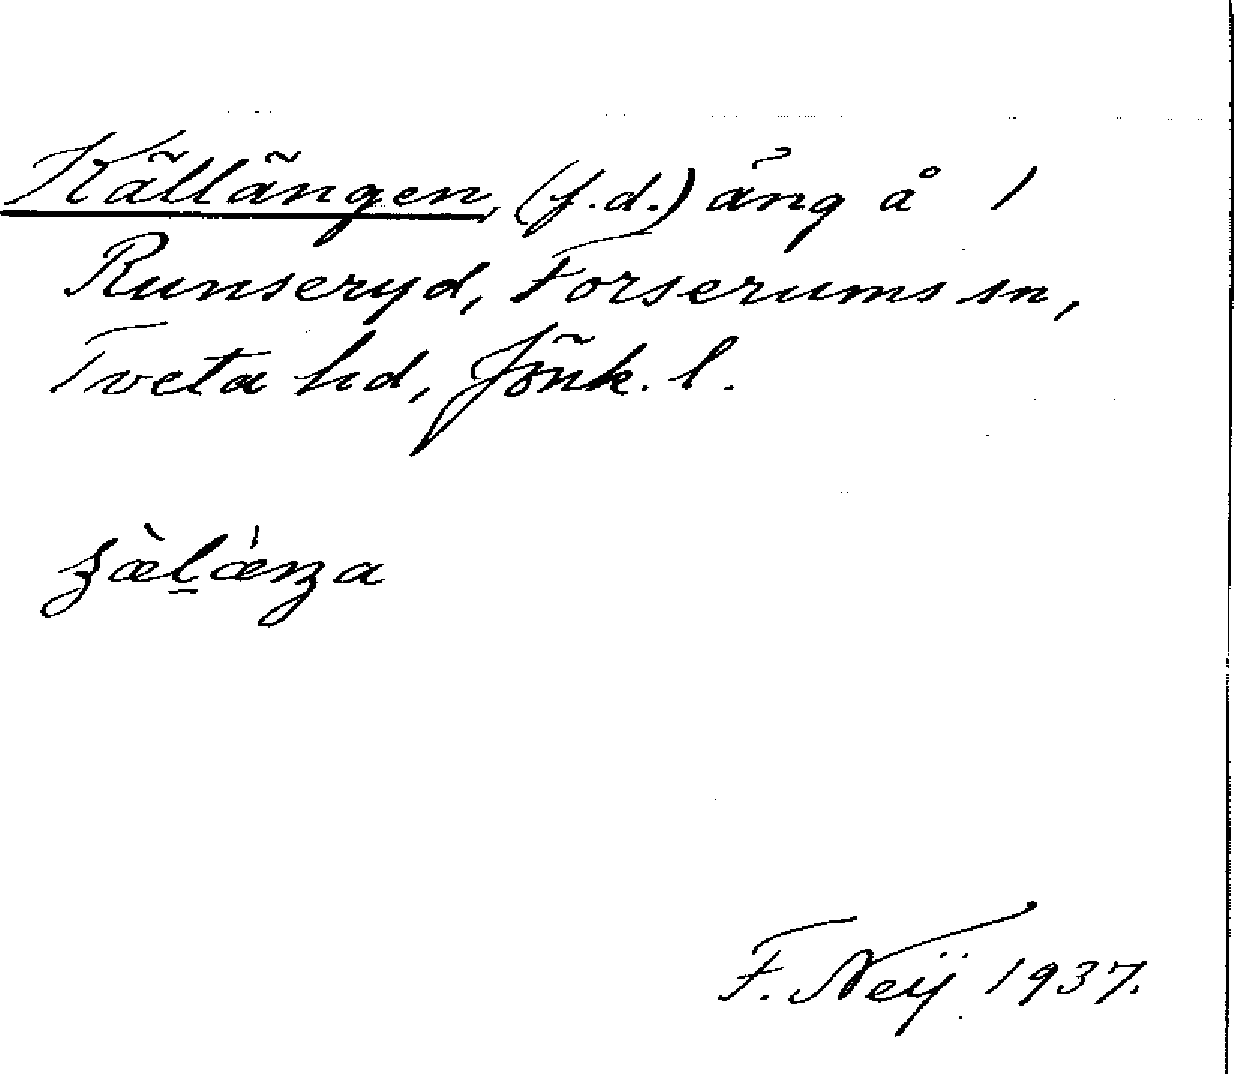 Källängen, (f.d.) äng å 1
Runseryd, Forserums sn,
Tveta hd, Jönk. l.
F. Neij 1937.